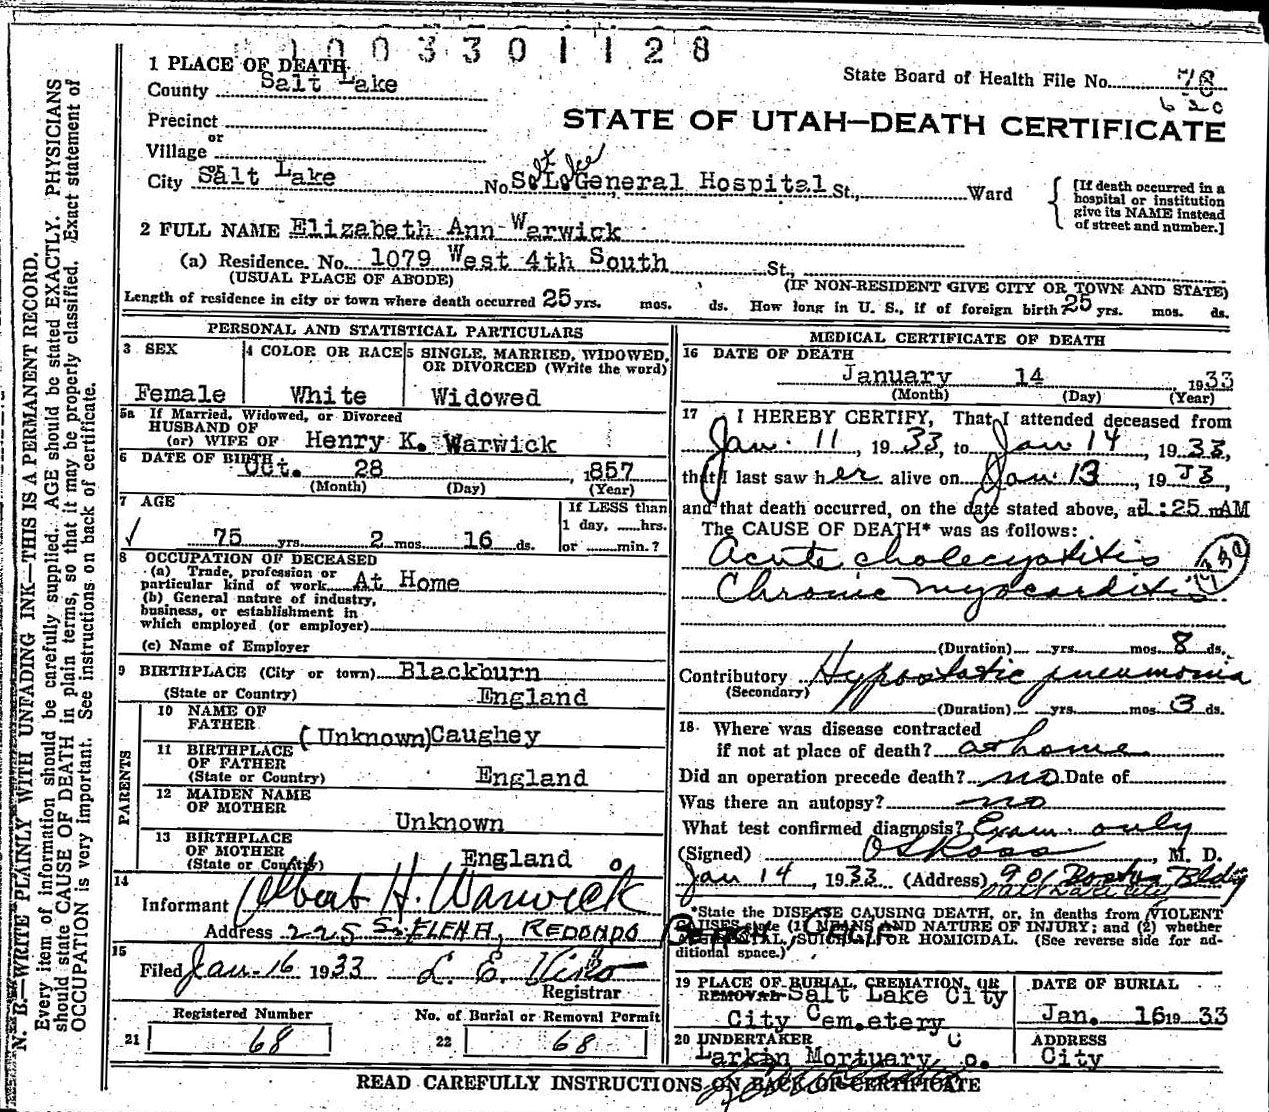 0003301128
1 PLACE OF DEATH
State Board of Health File No. 78
County Salt Lake
620
Precinct
STATE OF UTAH—DEATH CERTIFICATE
or
Village
or
City Salt Lake No. S. L. General Hospital St., Ward
[If death occurred in a hospital or institution give its NAME instead of street and number.]
2 FULL NAME Elizabeth Ann Warwick
(a) Residence. No. 1079 West 4th South St.,
(USUAL PLACE OF ABODE) (IF NON-RESIDENT GIVE CITY OR TOWN AND STATE)
Length of residence in city or town where death occurred 25 yrs. mos. ds. How long in U. S., if of foreign birth 25 yrs. mos. ds.
PERSONAL AND STATISTICAL PARTICULARS
3 SEX
Female
4 COLOR OR RACE
White
5 SINGLE, MARRIED, WIDOWED, OR DIVORCED (Write the word)
Widowed
5a If Married, Widowed, or Divorced
HUSBAND OF
(or) WIFE OF Henry K. Warwick
6 DATE OF BIRTH
Oct. 28, 1857
(Month) (Day) (Year)
7 AGE
75 yrs. 2 mos. 16 ds.
If LESS than
1 day, ......hrs.
or ........min.?
8 OCCUPATION OF DECEASED
(a) Trade, profession or
particular kind of work At Home
(b) General nature of industry,
business, or establishment in
which employed (or employer)
(c) Name of Employer
9 BIRTHPLACE (City or town) Blackburn
(State or Country) England
PARENTS
10 NAME OF
FATHER (Unknown) Caughey
11 BIRTHPLACE
OF FATHER
(State or Country) England
12 MAIDEN NAME
OF MOTHER
Unknown
13 BIRTHPLACE
OF MOTHER
(State or Country) England
14
Informant Albert H. Warwick
Address 225 S. ELENA, REDONDO
15
Filed Jan. 16 1933 L. E.
Registrar
Registered Number
21 68
No. of Burial or Removal Permit
22 68
MEDICAL CERTIFICATE OF DEATH
16 DATE OF DEATH
January 14, 1933
(Month) (Day) (Year)
17 I HEREBY CERTIFY, That I attended deceased from
Jan. 11, 1933, to Jan 14, 1933,
that I last saw her alive on Jan. 13, 1933,
and that death occurred, on the date stated above, at 1:25 m AM
The CAUSE OF DEATH* was as follows:
Acute cholecystitis
Chronic myocarditis
(Duration) yrs. mos. 8 ds.
Contributory Hypostatic pneumonia
(Secondary)
(Duration) yrs. mos. 3 ds.
18. Where was disease contracted
if not at place of death? at home
Did an operation precede death? no Date of
Was there an autopsy? no
What test confirmed diagnosis? Exam. only
(Signed) , M. D.
Jan 14, 1933 (Address) 901 Boston Bldg
*State the DISEASE CAUSING DEATH, or, in deaths from VIOLENT
CAUSES, state (1) MEANS AND NATURE OF INJURY; and (2) whether
ACCIDENTAL, SUICIDAL, FOR HOMICIDAL. (See reverse side for ad-
ditional space.)
19 PLACE OF BURIAL, CREMATION, OR
REMOVAL Salt Lake City
City Cemetery
DATE OF BURIAL
Jan. 16 1933
20 UNDERTAKER
Larkin Mortuary Co.
ADDRESS
City
READ CAREFULLY INSTRUCTIONS ON BACK OF CERTIFICATE
N. B.—WRITE PLAINLY WITH UNFADING INK—THIS IS A PERMANENT RECORD.
Every item of information should be carefully supplied. AGE should be stated EXACTLY. PHYSICIANS
should state CAUSE OF DEATH in plain terms, so that it may be properly classified. Exact statement of
OCCUPATION is very important. See instructions on back of certificate.